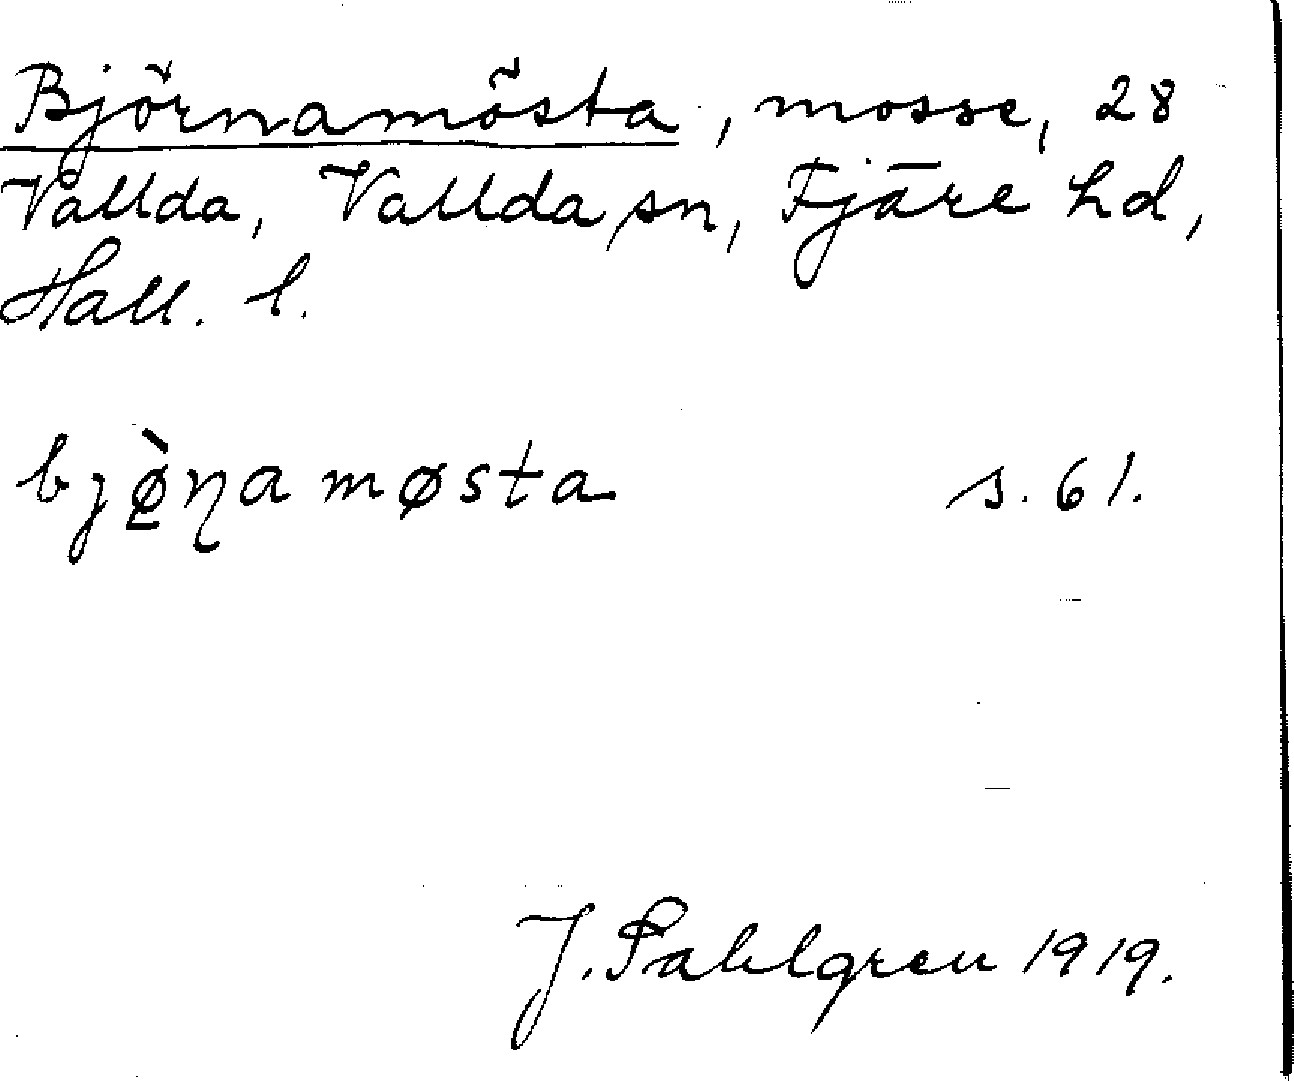 Björnamösta, mosse, 28
Vallda, Vallda sn, Fjäre hd,
Hall. l.
bjø̱̀ɳa møsta s. 61.
J. Sahlgren 1919.